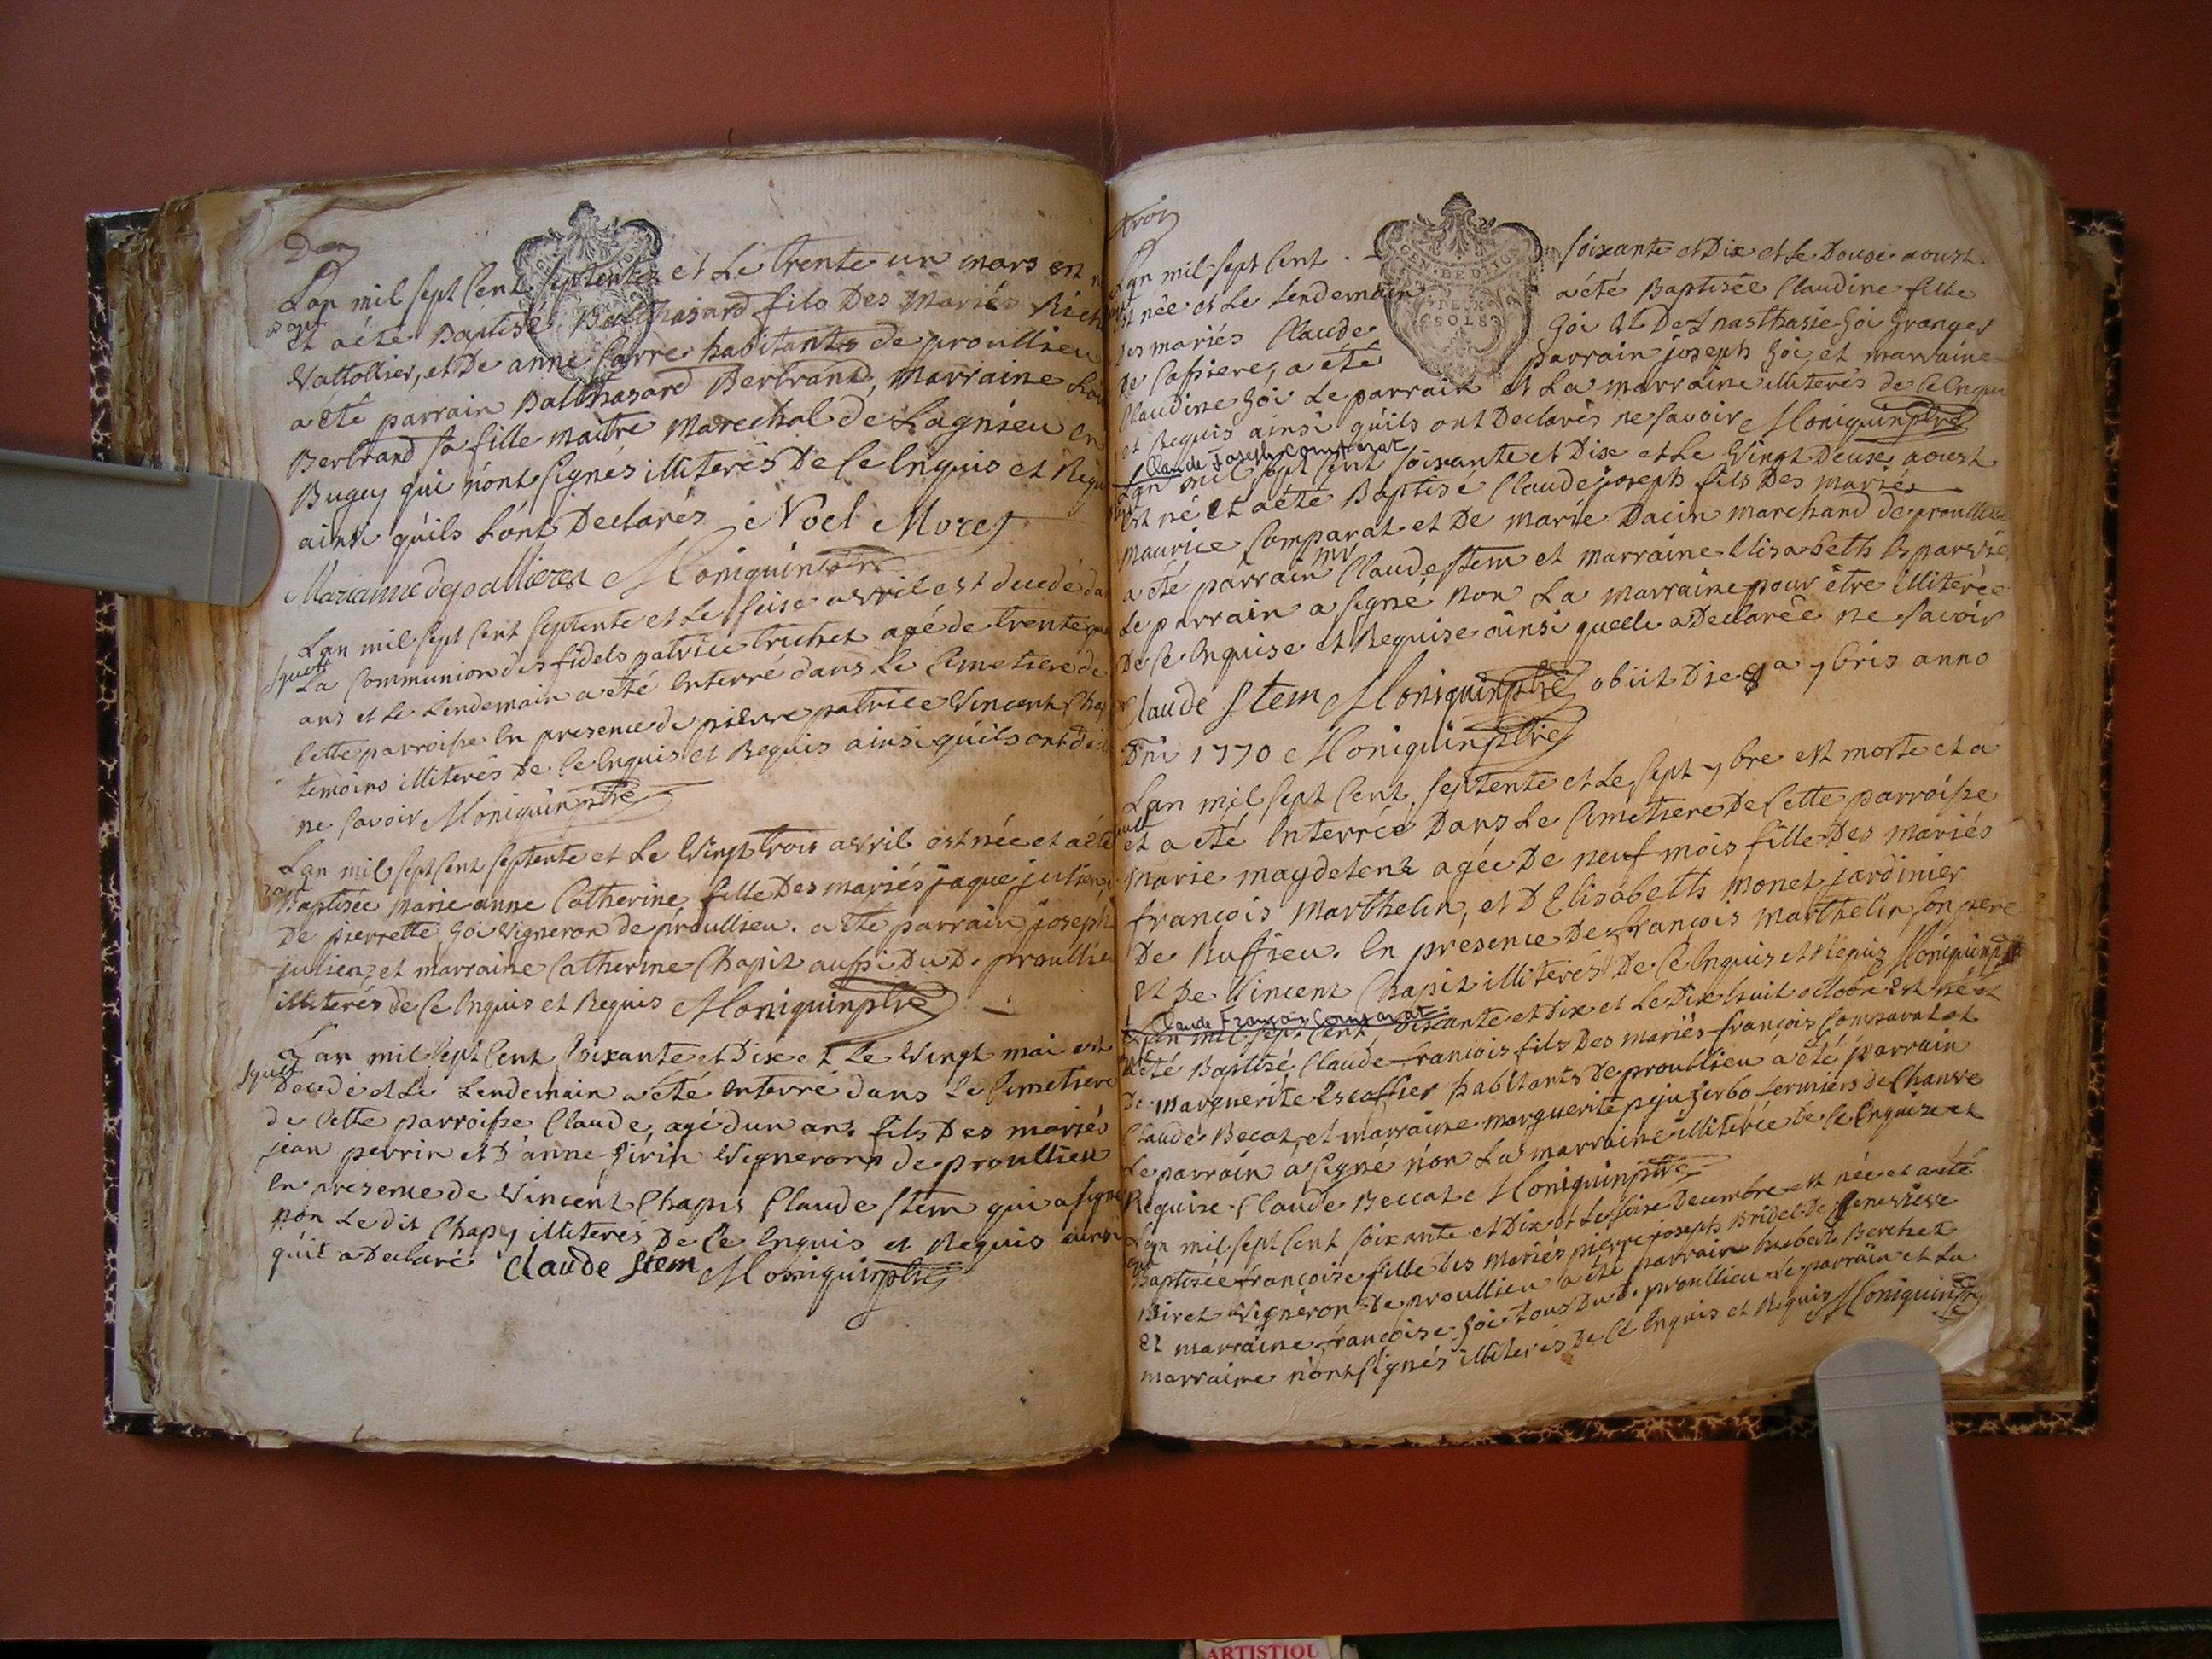 Deux
Lan mil sept Cent septente et Le trente un mars est n
Bapt
et aété Baptisé Balthasard fils Des mariés Rich
Vattollier, et De anne Carre habitants de proullieu
a été parrain Balthasard Berbrand, marraine
Berbrand sa fille maitre marechal de Lagnieu en
Bugey qui n'ont signés illiterés De Ce Enquis et Requ
ainsi qu'ils L'ont Declarés Noel Moret
Marianne depallieres Moniquin ptre
Lan mil sept Cent septente et Le seise avril est decedé da
Squlte
La Communion des fidels patrice truchet agé de trente
ans et Le Lendemain a eté Enterré dans Le Cimetiere de
Cette parroisse En presence de pierre patrice Vincent Chap
temoins illiterés De Ce Enquis et Requis ainsi qu'ils ont de
ne savoir Moniquin ptre
Lan mil sept Cent septente et Le Vingt trois avril est née et a été
Bapt
Baptisée marie anne Catherine fille Des mariés jaque julien
De pierrette Goi Vigneron de proullieu. a été parrain joseph
julien et marraine Catherine Chapit aussi Du D. proullieu
illiterés de Ce Enquis et Requis Moniquin ptre
Lan mil sept Cent soixante et Dix et Le Vingt mai est
Squlte
Decedé et Le Lendemain a été Enterré dans Le Cimetiere
de Cette parroisse Claude, agé dun an. fils Des mariés
jean perrin et D'anne Girin Vignerons de proullieu
En presence de Vincent Chapis Claude Stem qui a signé
non Ledit Chapis illiterés De Ce Enquis et Requis ainsi
qu'il a Declaré Claude Stem Moniquin ptre
trois
Lan mil sept Cent soixante et Dix et Le Douze aoust
est née et Le Lendemain a été Baptisée Claudine fille
Des mariés Claude Goi et De Anasthasie Goi Granger
De Cassiere, a été parrain joseph Goi et marraine
Claudine Goi Le parrain et La marraine illiterés de Ce Enquis
et Requis ainsi qu'ils ont Declarés ne savoir Moniquin ptre
Claude Joseph Comparat
Lan mil sept Cent soixante et Dix et Le Vingt Deux aoust
est né et a été Baptisé Claude joseph fils Des mariés
maurice Comparat et De marie Dacin marchand de proullieu
a été parrain mr Claude Stem et marraine Elisabeth
Le parrain a signé non La marraine pour être illiterée
De Ce Enquise et Requise ainsi quelle a Declarée ne savoir
Claude Stem Moniquin ptre obiit Die 8a 7bris anno
Dni 1770 Moniquin ptre
Lan mil sept Cent septente et Le sept 7bre est morte et a
et a eté Enterrée Dans Le Cimetiere De Cette parroisse
marie magdelene agée De neuf mois fille Des mariés
françois Marthelin, et D'Elisabeth monet jardinier
De Ruffieu. En presence De françois Marthelin son pere
et De Vincent Chapit illiterés De Ce Enquis et Requis Moniquin ptre
Claude François Comparat
Lan mil sept Cent soixante et Dix et Le Dix huit octobre est né et
a été Baptisé Claude francois fils Des mariés françois Comparat et
De marguerite Escoffier habitants De proullieu a été parrain
Claude Becat, et marraine marguerite fermiers de Chanve
Le parrain a signé non La marraine illiterée De Ce Enquise et
Requise Claude Beccat Moniquin ptre
Lan mil sept Cent soixante et Dix et Le seise Decembre est née et a été
Baptisée françoise fille Des mariés pierre joseph Bridel De Genevieve
Biret Vigneron De proullieu a été parrain huberte Berchet
et marraine francoise Goi tous Du D. proullieu Le parrain et La
marraine n'ont signés illiterés De Ce Enquis et Requis Moniquin ptre
GEN. DE DIJON
DEUX
SOLS
ARTISTIQU